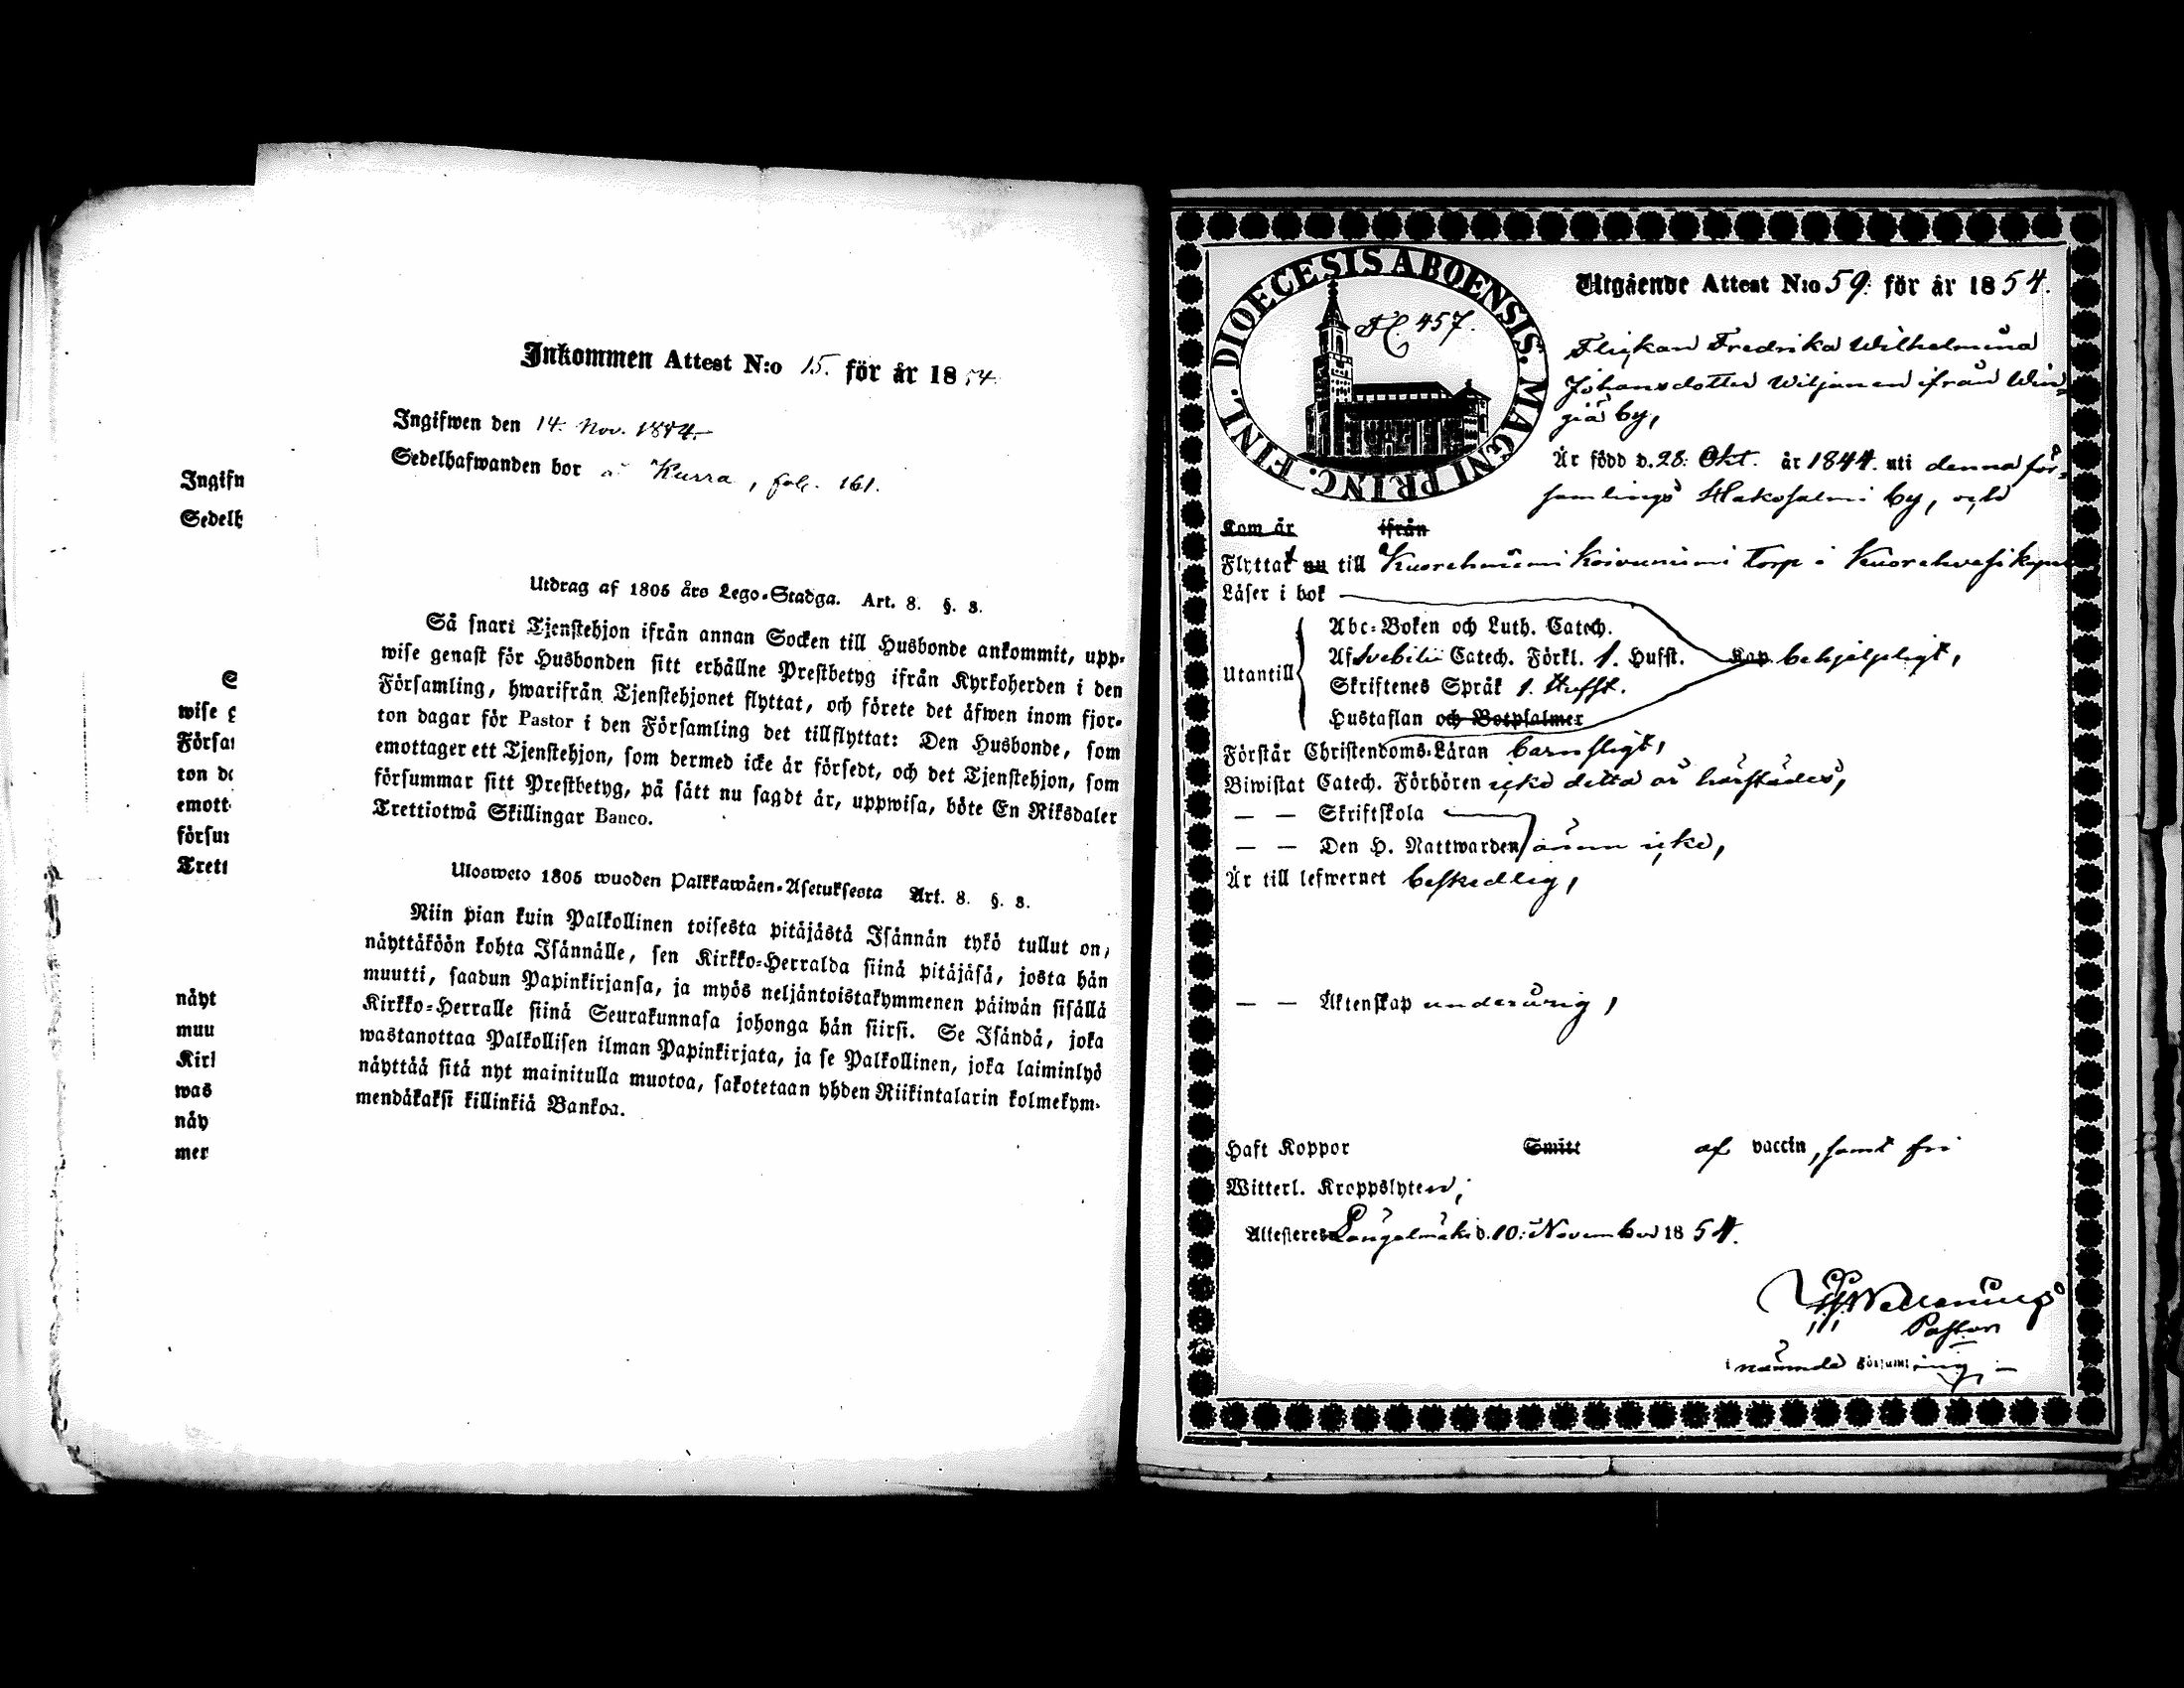 Inkommen Attest N:o 15. för år 1854.
Ingifwen den 14. Nov. 1844.
Sedelhafwanden bor å Kurra, fol. 161.
Utdrag af 1805 års Lego-Stadga. Art. 8. §. 8.
Så snart Tjenstehjon ifrån annan Socken till Husbonde ankommit, upp-
wise genast för Husbonden sitt erhållne Prestbetyg ifrån Kyrkoherden i den
Församling, hwarifrån Tjenstehjonet flyttat, och förete det äfwen inom fjor-
ton dagar för Pastor i den Församling det tillflyttat: Den Husbonde, som
emottager ett Tjenstehjon, som dermed icke är försedt, och det Tjenstehjon, som
försummar sitt Prestbetyg, på sätt nu sagdt är, uppwisa, böte En Riksdaler
Trettiotwå Skillingar Banco.
Ulosweto 1805 wuoden Palkkawäen-Asetuksesta Art. 8. §. 8.
Niin pian kuin Palkollinen toisesta pitäjästä Isännän tykö tullut on,
näyttäköön kohta Isännälle, sen Kirkko-Herralda siinä pitäjäsä, josta hän
muutti, saadun Papinkirjansa, ja myös neljäntoistakymmenen päiwän sisällä
Kirkko-Herralle siinä Seurakunnasa johonga hän siirsi. Se Isändä, joka
wastanottaa Palkollisen ilman Papinkirjata, ja se Palkollinen, joka laiminlyö
näyttää sitä nyt mainitulla muotoa, sakotetaan yhden Riikintalarin kolmekym-
mendäkaksi killinkiä Bankoa.
Ingifn
Sedelh
S
wise g
Försa
ton d
emott
försu
Trett
näyt
muu
Kirk
was
näy
mer
DIOECESIS ABOENSIS. MAGNI PRINC. FINL.
457.
Utgående Attest N:o 59. för år 1854.
Flickan Fredrika Wilhelmina
Johansdotter Wiljanen ifrån Win-
giä by,
Är född d. 28. Okt. år 1844. uti denna för-
samlings Hakosalmi by, och
Kom år ifrån
Flyttat nu till Kuorehniemi Koivuniemi torp i Kuorehvesi kapell
Läser i bok
Utantill
Abc-Boken och Luth. Catech.
Af Svebilii Catech. Förkl. 1. Hufst. Kap behjelpligt,
Skriftenes Språk 1. Hufst.
Hustaflan och Botpsalmer
Förstår Christendoms-Läran barnsligt,
Biwistat Catech. Förhören icke detta år härstädes,
— — Skriftskola
— — Den H. Nattwarden ännu icke,
Är till lefwernet beskedlig,
— — Äktenskap underårig,
Haft Koppor Smitt af vaccin, samt fri
Witterl. Kroppslyten,
Attesteres Längelmäki d. 10. November 1854.
Pastor
i nämnde Församling.